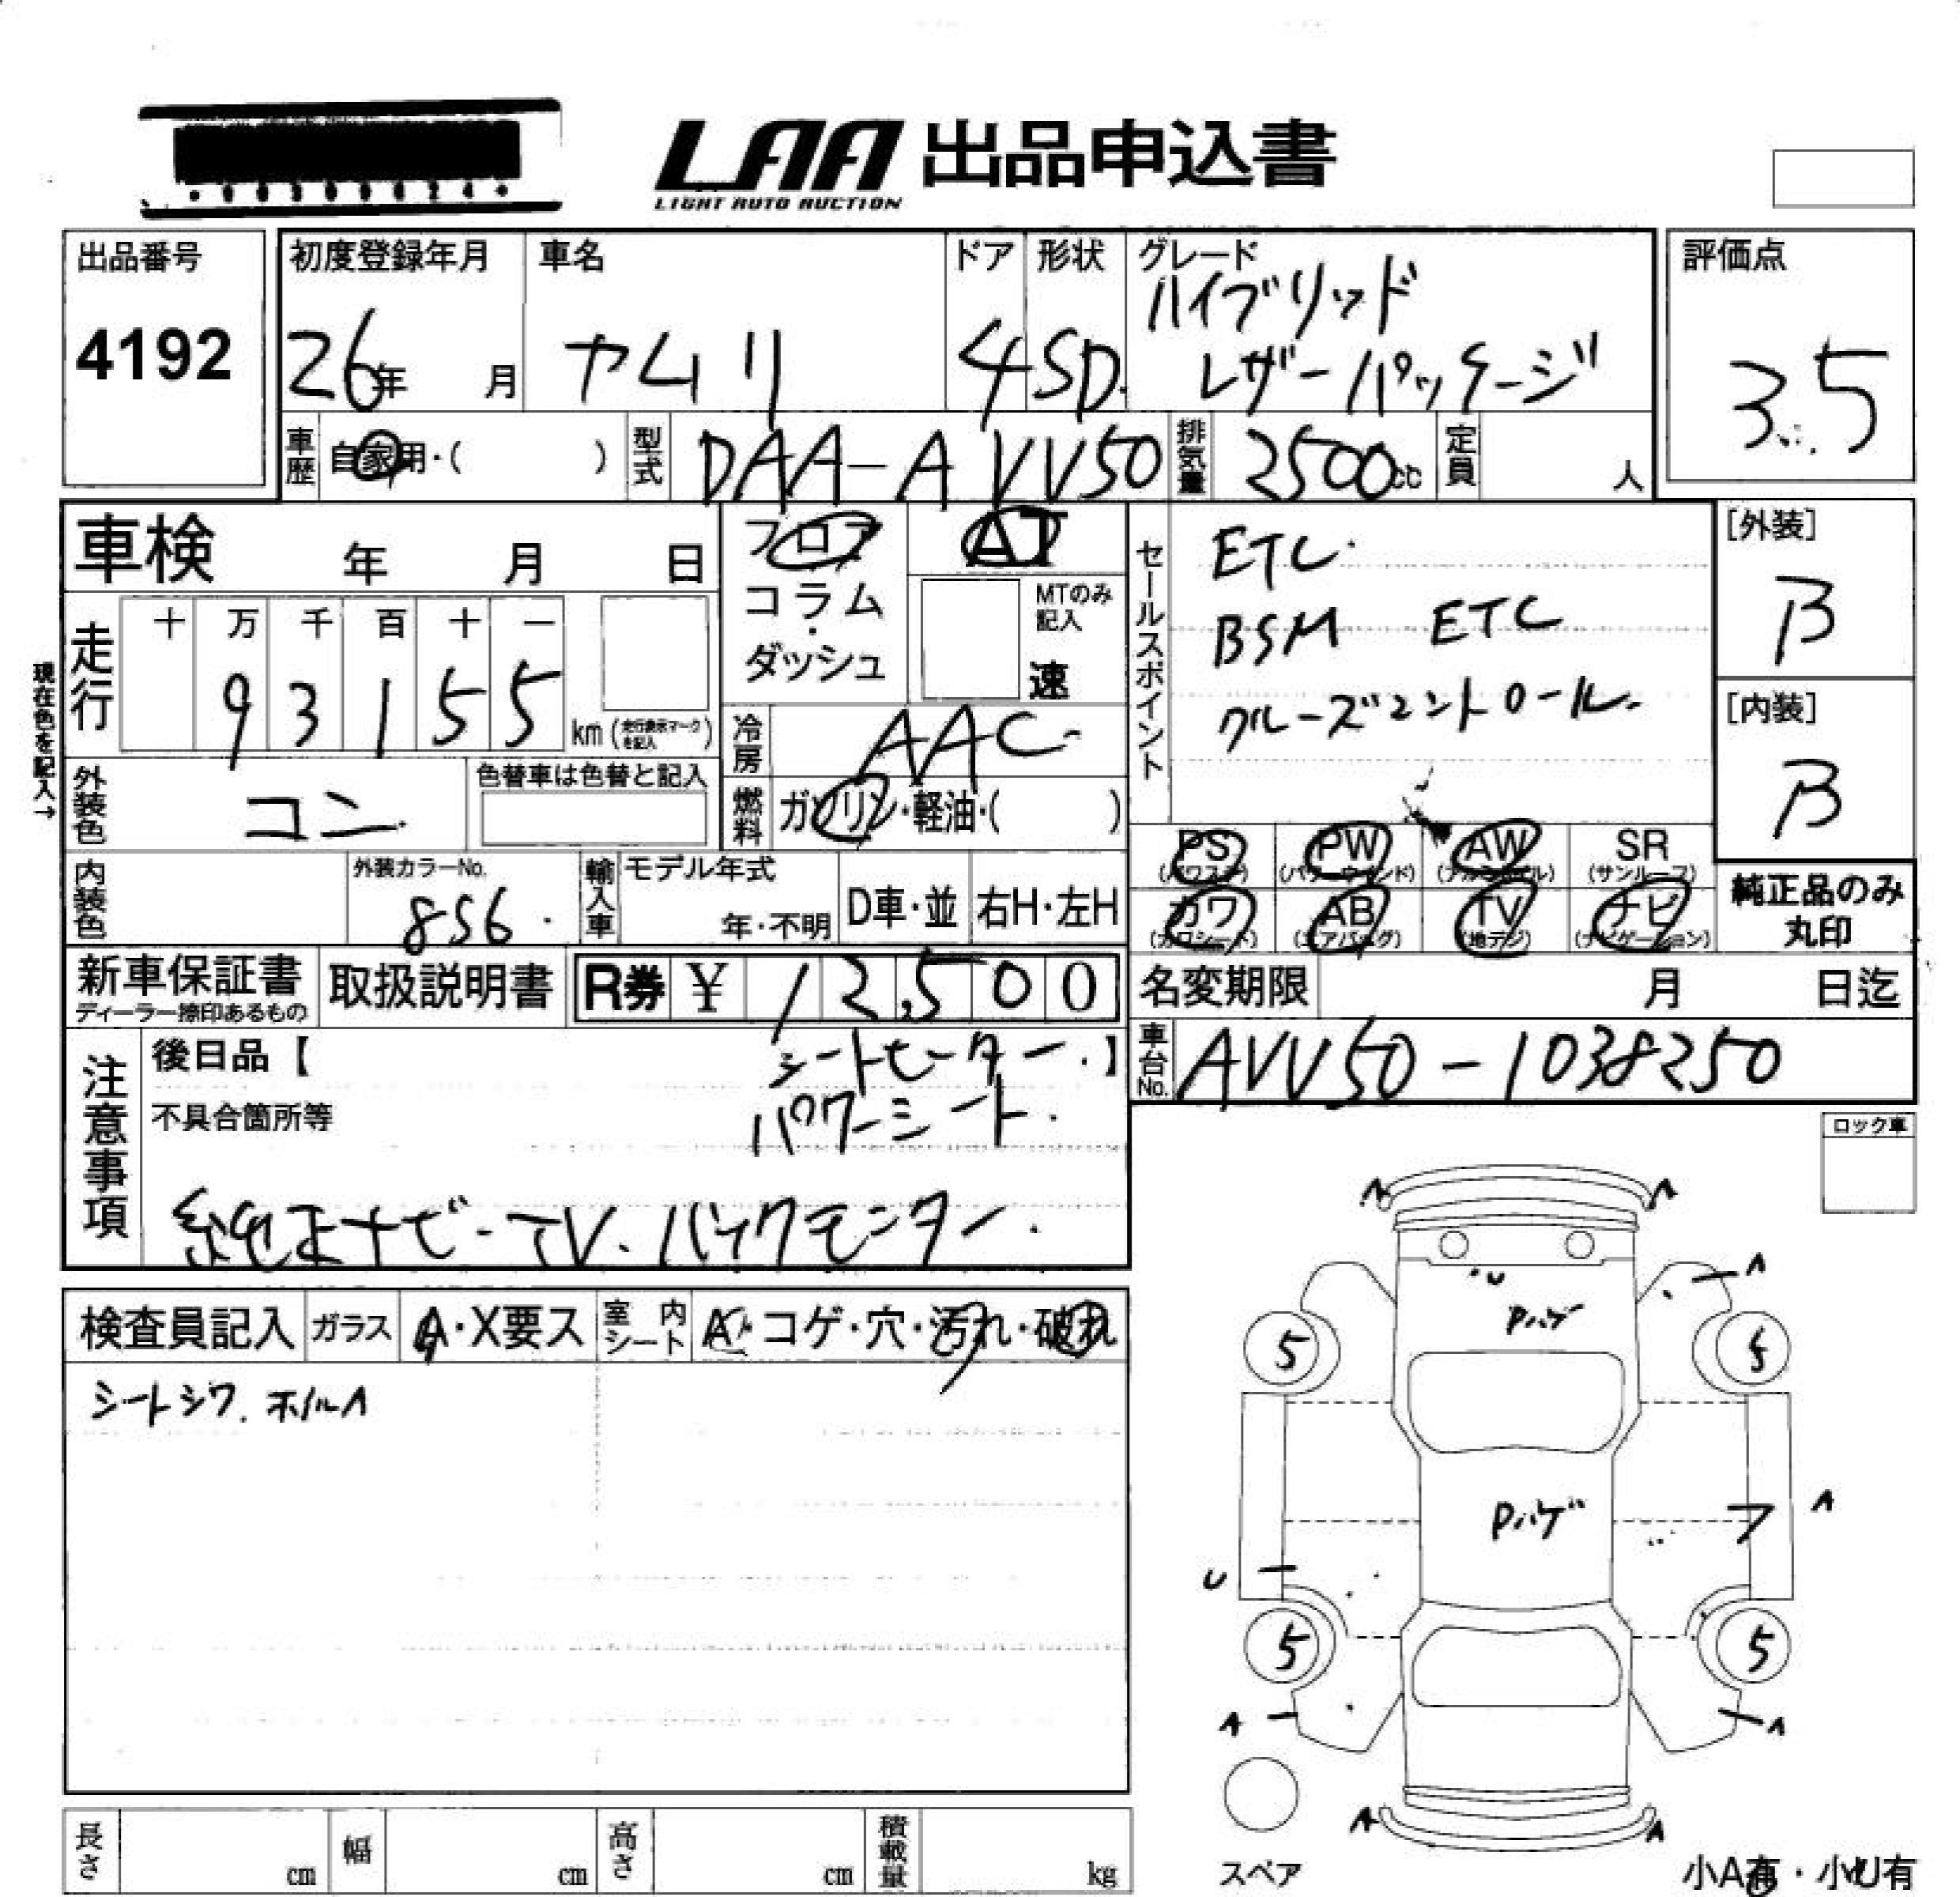 LAA 出品申込書
LIGHT AUTO AUCTION
出品番号
4192
初度登録年月
26年 月
車名
カムリ
ドア
4
形状
SD.
グレード
ハイブリッド
レザーパッケージ
評価点
3.5
車歴 自家用・( )
型式 DAA-AVV50
排気量 2500cc
定員 人
車検 年 月 日
フロア
コラム
・
ダッシュ
AT
MTのみ
記入
速
セールスポイント
ETC.
BSM ETC
クルーズコントロール.
[外装]
B
[内装]
B
現在色を記入→
走行
十 万 千 百 十 一
9 3 1 5 5
km (走行表示マークを記入)
冷房 AAC
燃料 ガソリン・軽油・( )
外装色 コン.
色替車は色替と記入
内装色
外装カラーNo.
856.
輸入車
モデル年式
年・不明
D車・並
右H・左H
PS (パワステ)
PW (パワーウインド)
AW (アルミホイル)
SR (サンルーフ)
カワ (カワシート)
AB (エアバッグ)
TV (地デジ)
ナビ (ナビゲーション)
純正品のみ
丸印
新車保証書
ディーラー捺印あるもの
取扱説明書
R券 ¥ 12,500
名変期限 月 日迄
車台No. AVV50-1038250
注意事項
後日品【 】
シートモーター.
不具合箇所等
パワーシート.
純正ナビ-TV.バックモニター.
ロック車
検査員記入
ガラス A・X要ス
室内シート A・コゲ・穴・汚れ・破れ
シートシワ. ホイルA
A A
U
A
Pハゲ
5 5
Pハゲ
A
U
5 5
A A
A A
スペア
小A有・小U有
長さ cm
幅 cm
高さ cm
積載量 kg